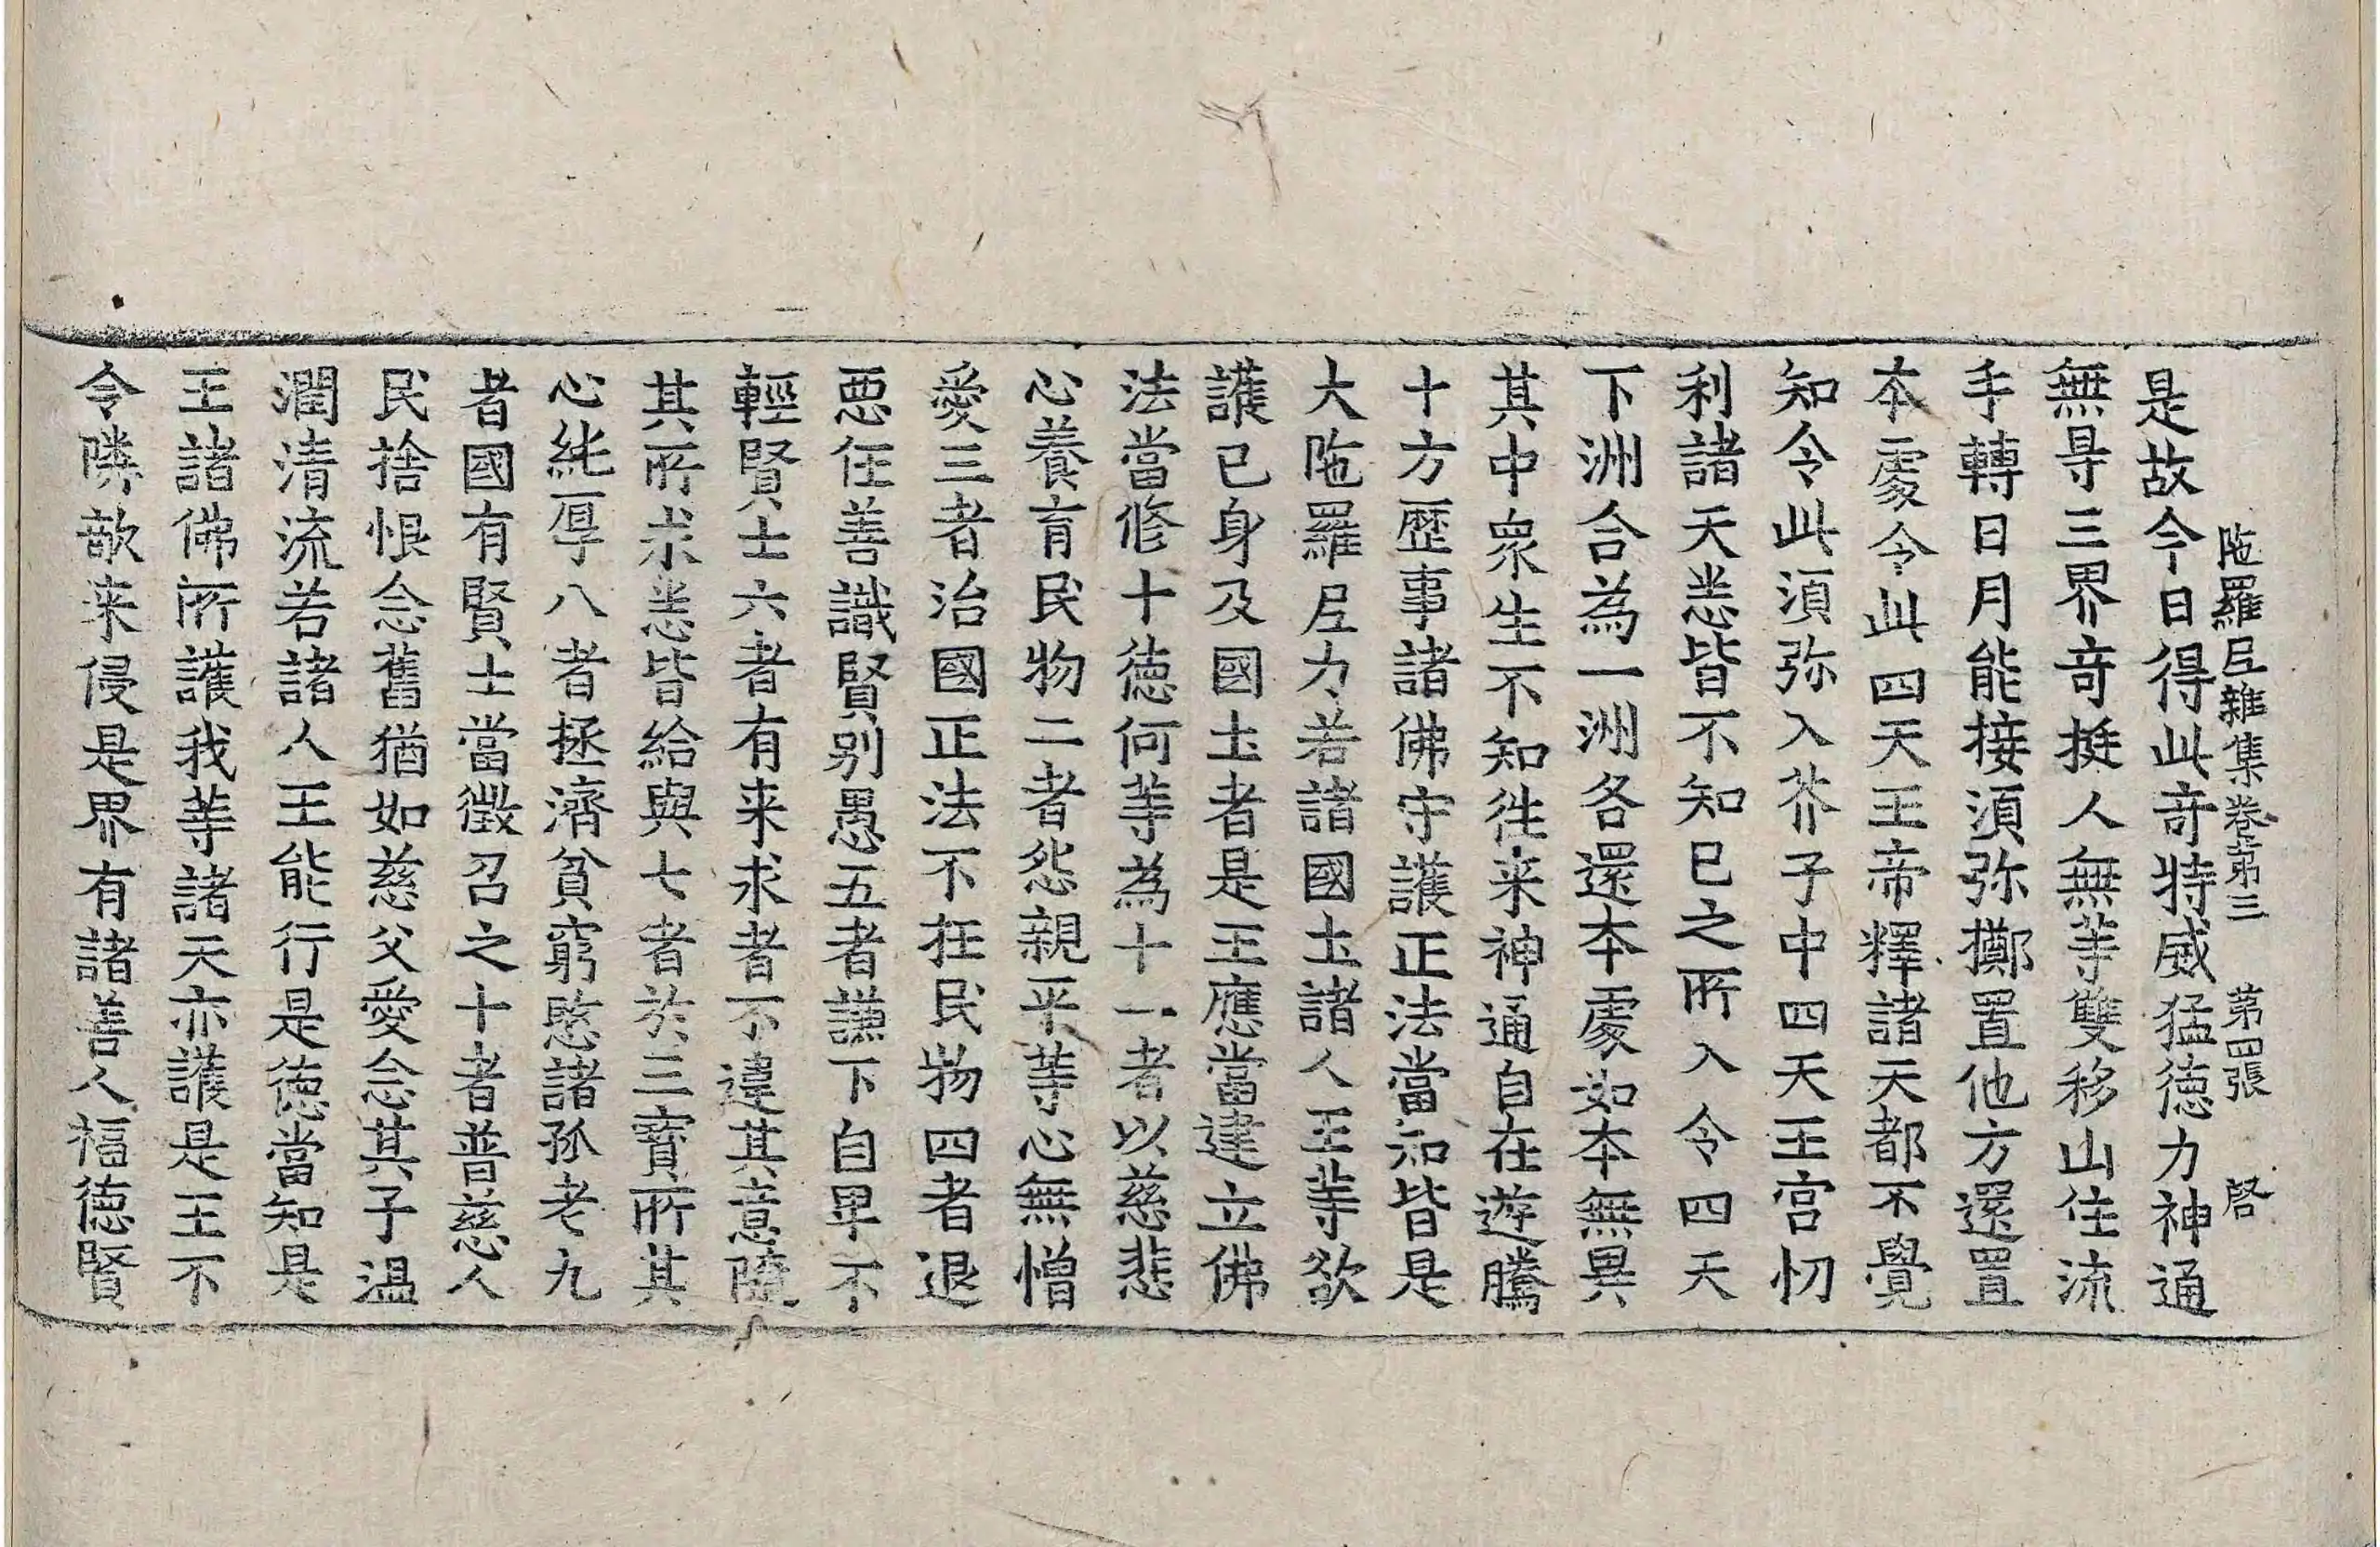 陁羅尼雜集卷第三 第四張 啓
是故今日得此竒特威猛徳力神通
無㝵三界竒挺人無等雙移山住流
手轉日月能接湏弥擲置他方還置
本處令此四天王帝釋諸天都不覺
知令此湏弥入芥子中四天王宫忉
利諸天恙皆不知已之所入令四天
下洲合為一洲各還本處如本無異
其中衆生不知徃来神通自在遊騰
十方歷事諸佛守護正法當知皆是
大陁羅尼力若諸國土諸人王等欲
護已身及國土者是王應當建立佛
法當修十徳何等為十一者以慈悲
心養育民物二者怨親平等心無憎
愛三者治國正法不枉民物四者退
惡任善識賢别愚五者謙下自卑不
輕賢士六者有来求者不違其意隨
其所求恙皆給與七者於三寶所其
心純厚八者拯濟貧窮愍諸孤老九
者國有賢士當徵召之十者普慈人
民捨恨念舊猶如慈父愛念其子温
潤清流若諸人王能行是徳當知是
王諸佛所護我等諸天亦護是王不
令隣敵来侵是界有諸善人福徳賢